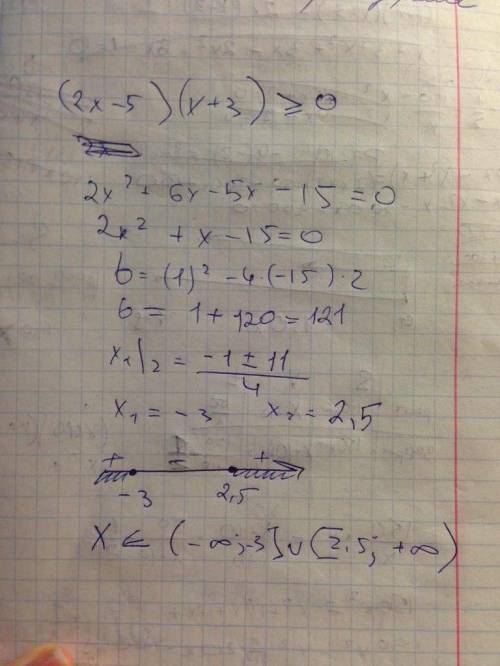 (2x-5)(x+3) ≥ 0
2x² + 6x - 5x - 15 = 0
2x² + x - 15 = 0
б = (1)² - 4·(-15)·2
б = 1 + 120 = 121
x₁/₂ = (-1 ± 11)/4
x₁ = -3 x₂ = 2,5
+ - +
-3 2,5
X ∈ (-∞;-3]∪[2,5; +∞)